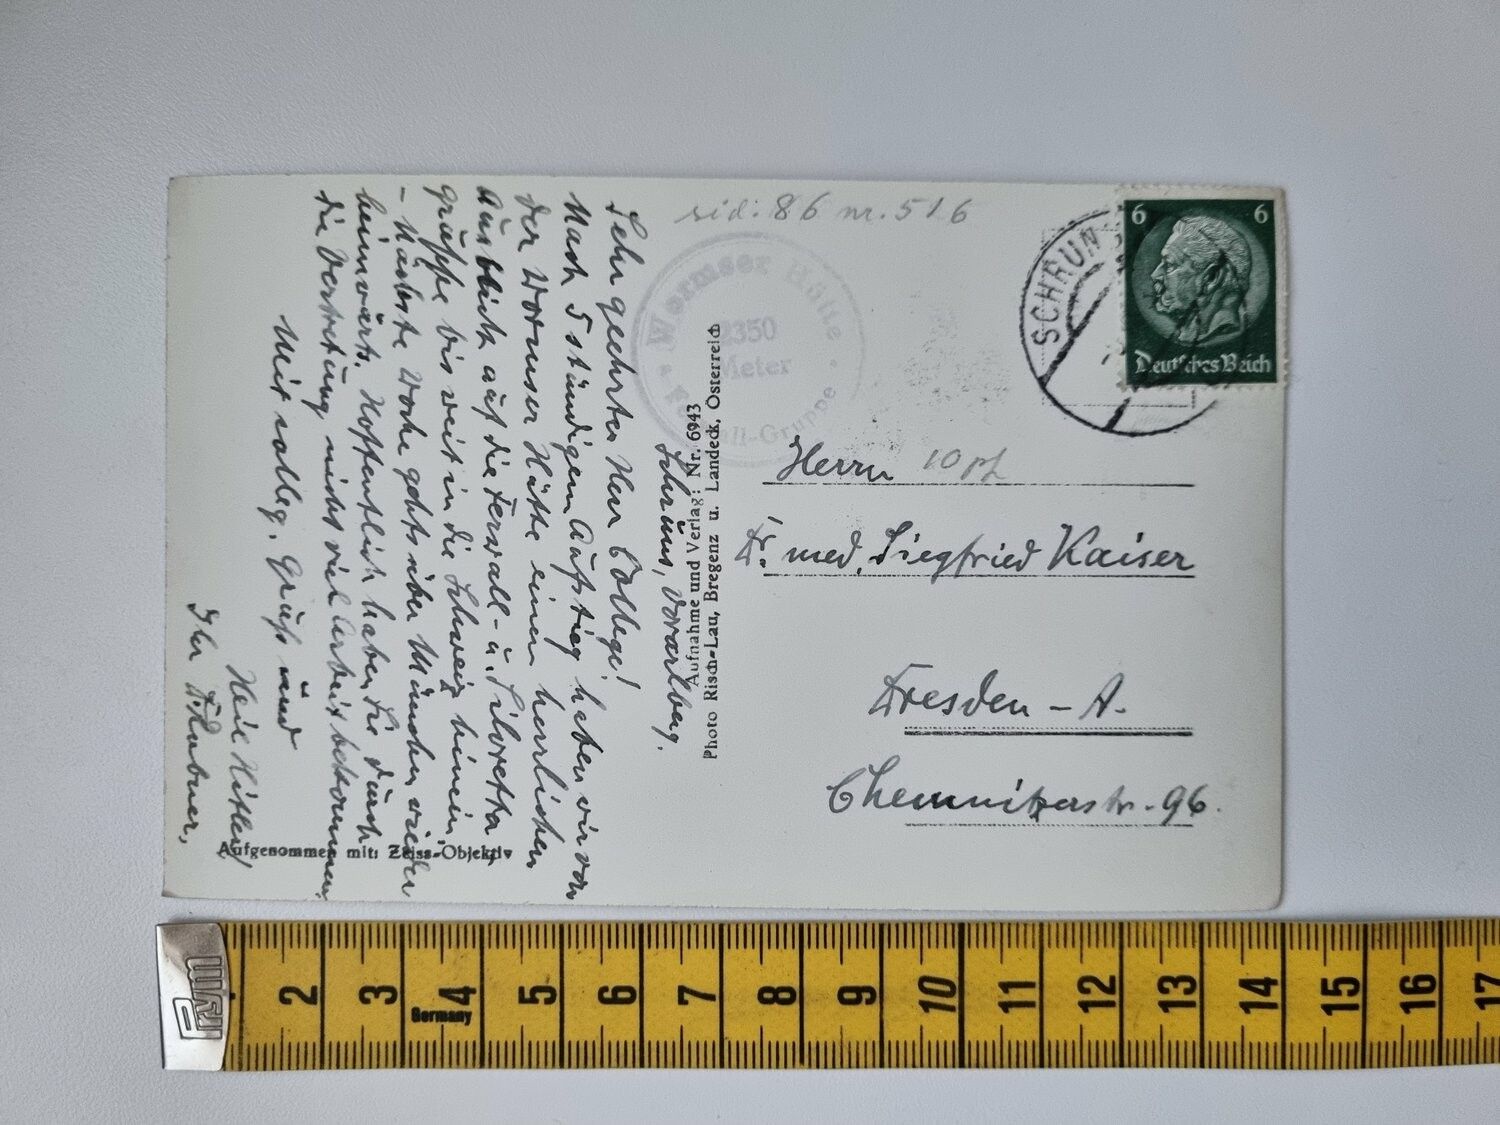 sid: 86 nr. 516
Wormser Hütte
2350
Meter
Fe ll-Gruppe
SCHRUN
6 6
Deutsches Reich
Herrn 10 Pf
Dr. med. Siegfried Kaiser
Dresden - A.
Chemnitzerstr. 96.
Aufnahme und Verlag: Nr. 6943
Photo Risch-Lau, Bregenz u. Landeck, Österreich
Schruns, Vorarlberg.
Sehr geehrter Herr College!
Nach 5 stündigem Aufstieg haben wir von
der Wormser Hütte einen herrlichen
Ausblick auf die Ferwall- u. Silvretta
gruppe bis weit in die Schweiz hinein.
- Nächste Woche gehts über München wieder
heimwärts. Hoffentlich haben Sie durch
die Vertretung nicht viel Arbeit bekommen.
Mit colleg. Gruß und
Heil Hitler
Ihr
Aufgenommen mit: Zeiss-Objektiv
2 3 4 5 6 7 8 9 10 11 12 13 14 15 16 17
Germany